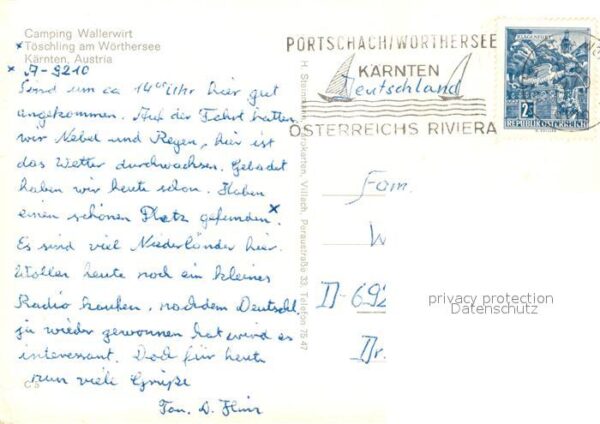 Camping Wallerwirt
Töschling am Wörthersee
Kärnten, Austria
A-9210
Sind um ca 14⁰⁰ Uhr hier gut
angekommen. Auf der Fahrt hatten
wir Nebel und Regen, hier ist
das Wetter durchwachsen. Gebadet
haben wir heute schon. Haben
einen schönen Platz gefunden
Es sind viel Niederländer hier.
Wollen heute noch ein kleines
Radio kaufen, nachdem Deutschl.
ja wieder gewonnen hat wird es
interessant. Doch für heute
nun viele Grüße
Fam. D.
PÖRTSCHACH/WÖRTHERSEE
KÄRNTEN
Deutschland
ÖSTERREICHS RIVIERA
KLAGENFURT
2
REPUBLIK ÖSTERREICH
Villach, Peraustraße 33, Telefon 75 47
Fam.
W
D-692
privacy protection
Datenschutz